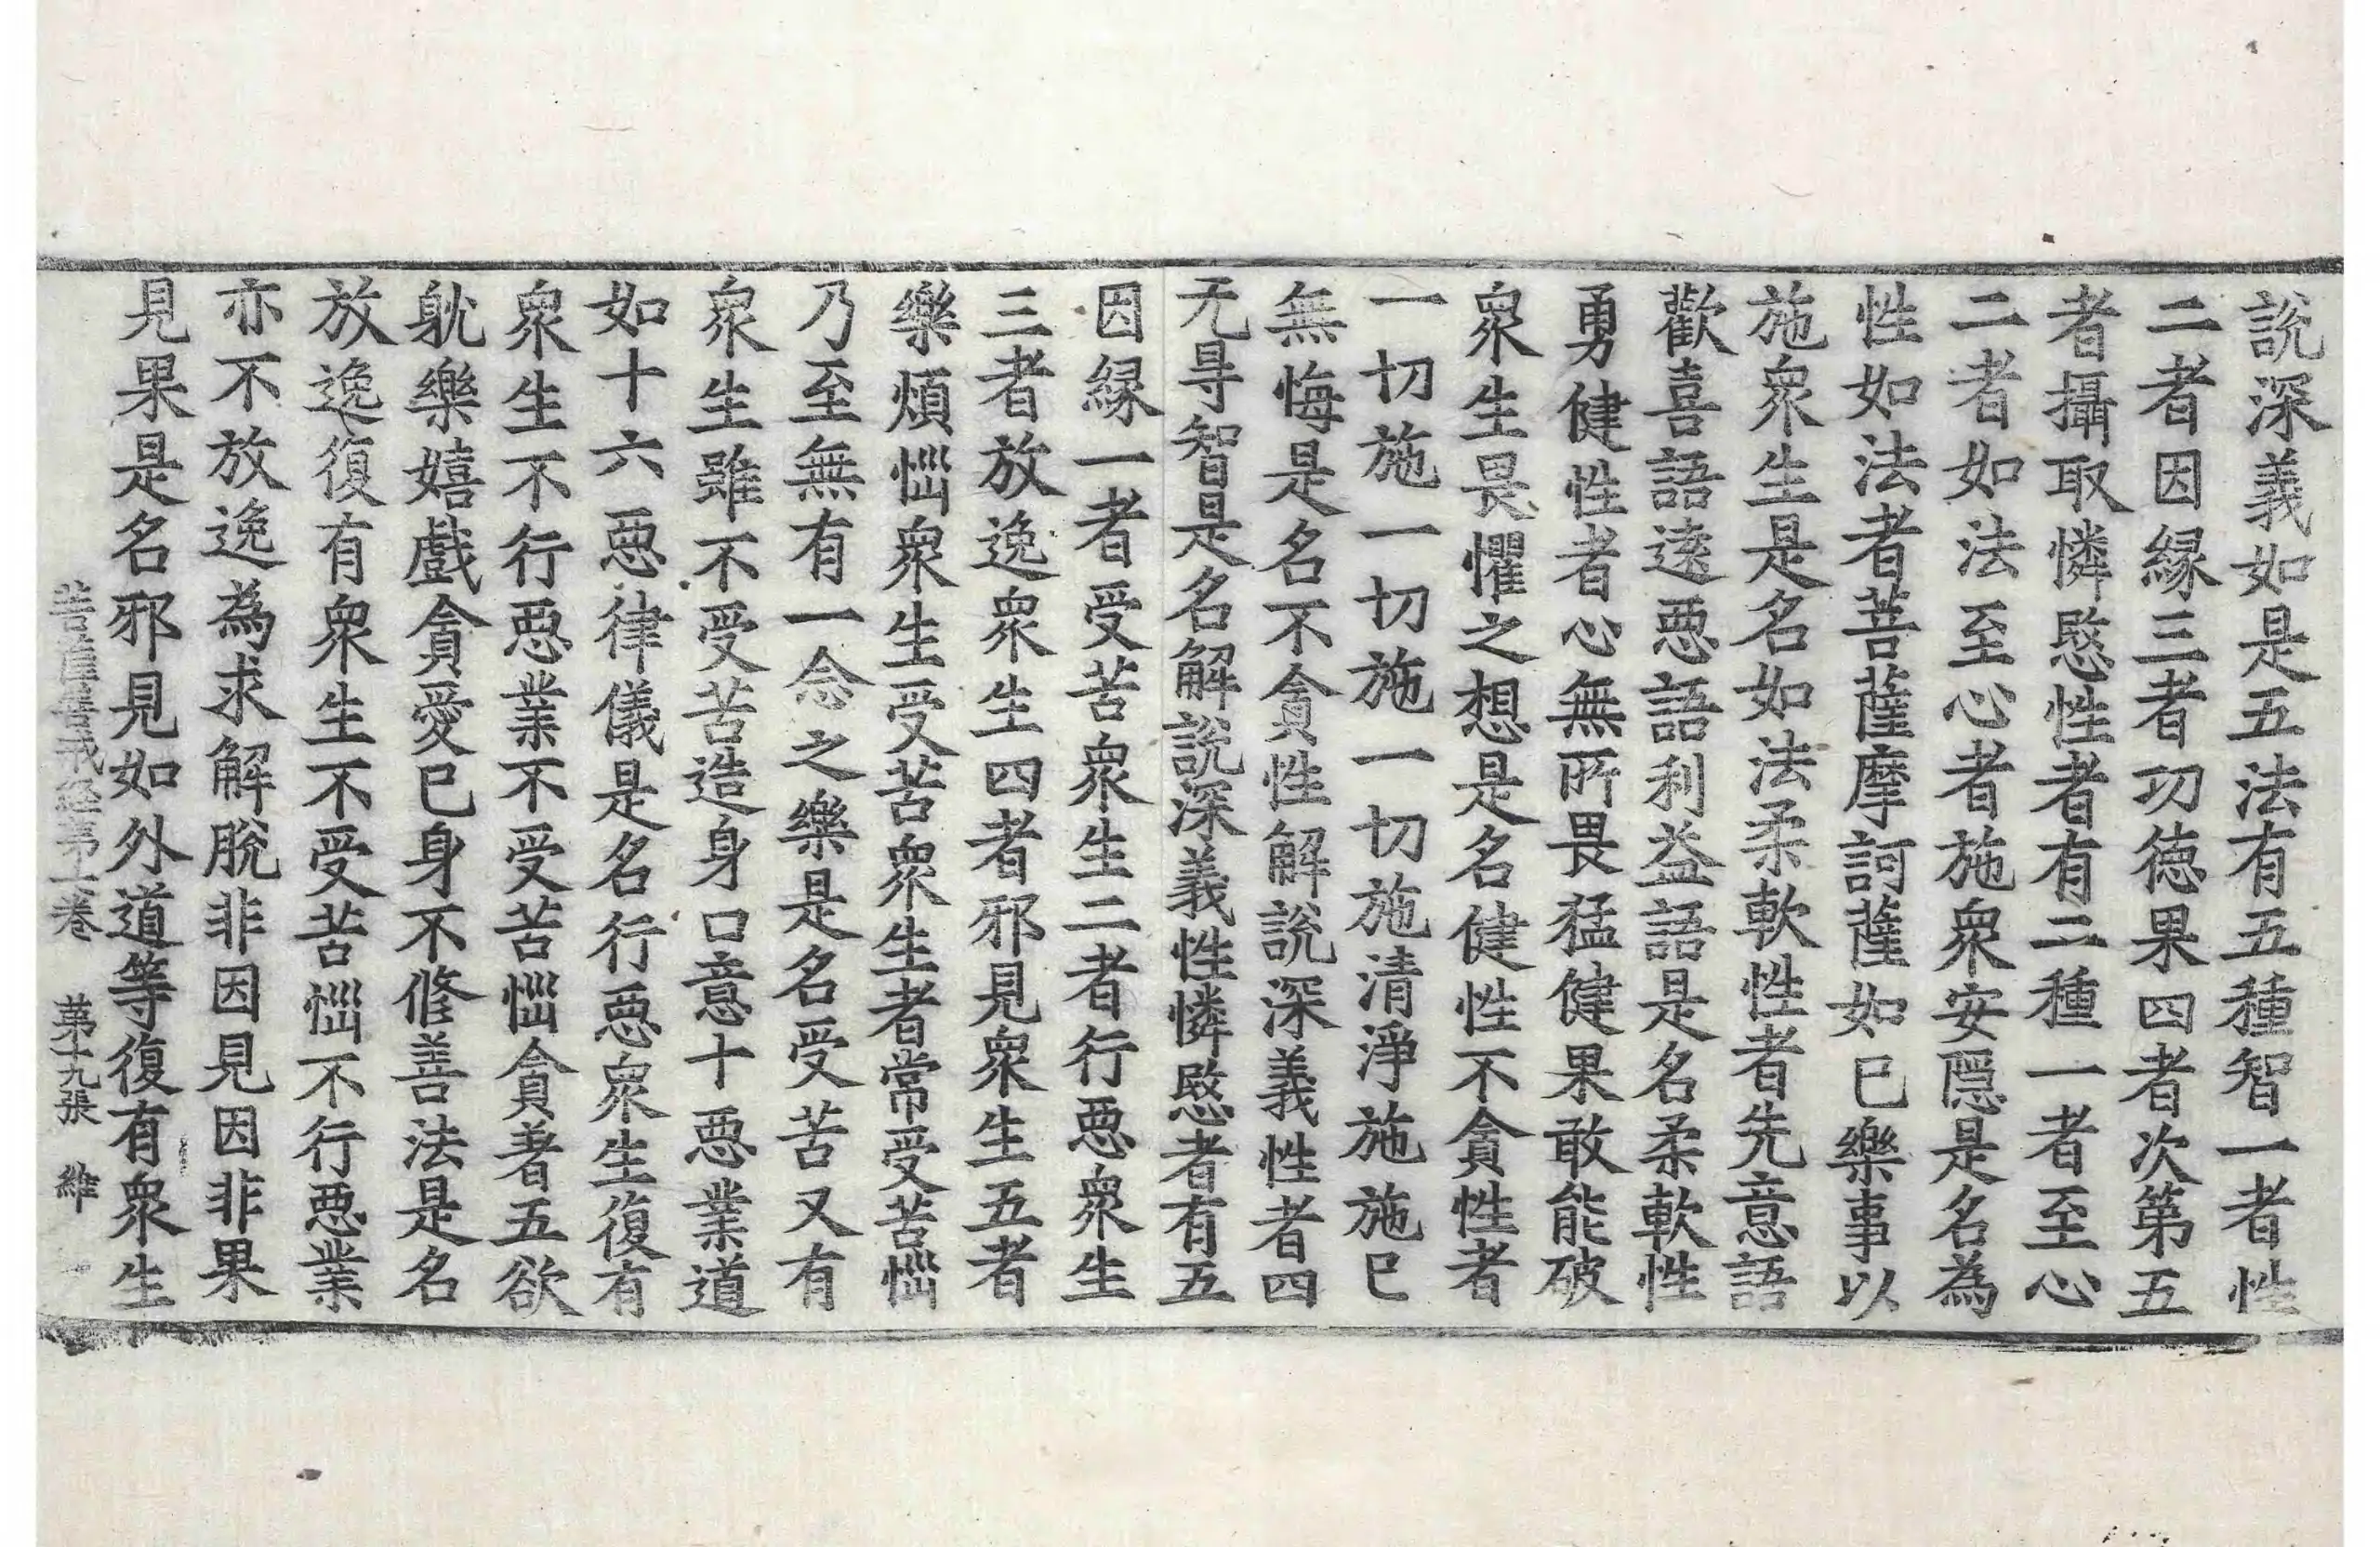 說深義如是五法有五種智一者性
二者因縁三者功徳果四者次第五
者攝取憐愍性者有二種一者至心
二者如法至心者施衆安隱是名為
性如法者菩薩摩訶薩如已樂事以
施衆生是名如法柔軟性者先意語
歡喜語遠惡語利益語是名柔軟性
勇健性者心無所畏猛健果敢能破
衆生畏懼之想是名健性不貪性者
一切施一切施一切施清淨施施已
無悔是名不貪性解說深義性者四
无㝵智是名解說深義性憐愍者有五
因縁一者受苦衆生二者行惡衆生
三者放逸衆生四者邪見衆生五者
樂煩惱衆生受苦衆生者常受苦惱
乃至無有一念之樂是名受苦又有
衆生雖不受苦造身口意十惡業道
如十六惡律儀是名行惡衆生復有
衆生不行惡業不受苦惱貪著五欲
躭樂嬉戲貪愛已身不修善法是名
放逸復有衆生不受苦惱不行惡業
亦不放逸為求解脫非因見因非果
見果是名邪見如外道等復有衆生
菩薩善戒經第七卷 第十九張 維